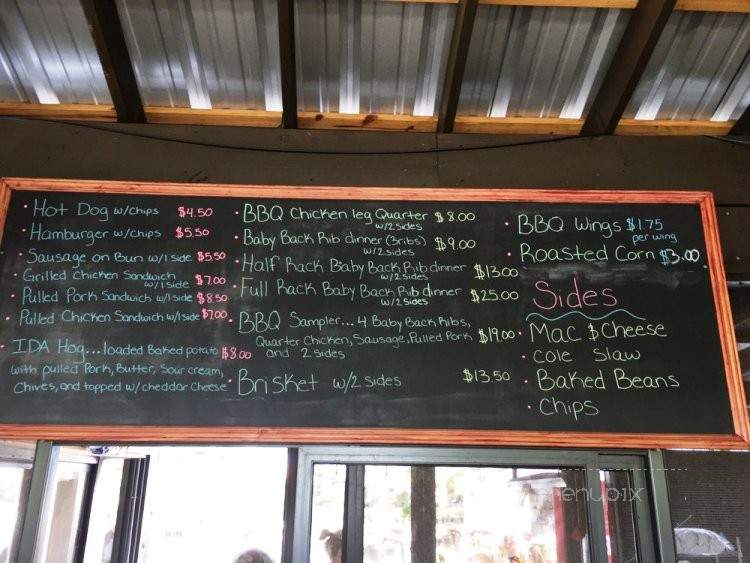 • Hot Dog w/chips $4.50
• Hamburger w/chips $5.50
• Sausage on Bun w/1 side $5.50
• Grilled chicken Sandwich
w/1 side $7.00
• Pulled Pork Sandwich w/1 side $8.50
• Pulled Chicken Sandwich w/1 side $7.00
• IDA Hog...loaded Baked potato $8.00
with pulled Pork, Butter, Sour cream,
Chives, and topped w/cheddar cheese
• BBQ Chicken leg Quarter $8.00
w/2 sides
• Baby Back Rib dinner (3ribs) $9.00
w/2 sides
• Half Rack Baby Back Rib dinner $13.00
w/2 sides
• Full Rack Baby Back Rib dinner $25.00
w/2 sides
• BBQ Sampler... 4 Baby Back Ribs,
Quarter Chicken, Sausage, Pulled Pork $19.00
and 2 sides
• Brisket w/2 sides $13.50
• BBQ Wings $1.75
per wing
• Roasted Corn $3.00
Sides
• Mac & Cheese
• Cole Slaw
• Baked Beans
• Chips
menupix